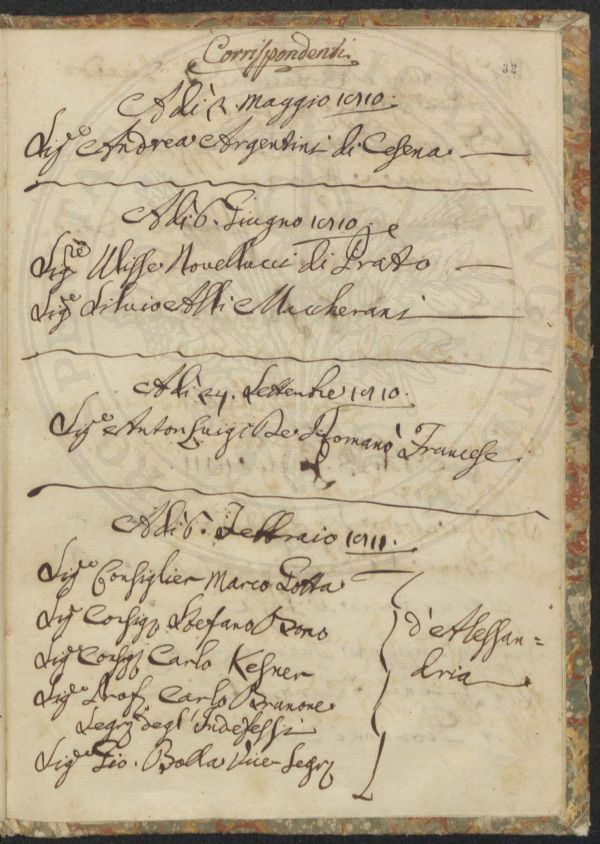 Corrispondenti.
32
Adì 2. Maggio 1810.
Sig.e Andrea Argentini di Cesena.
Adì 6. Giugno 1810.
Sig.re Ulisse Novellucci di Prato
Sig.e Silvio Alli Maccherani
Adì 24. Settembre 1810.
Sig.e Anton Luigi De Romanò Francese.
Adì 6. Febbraio 1811.
Sig.e Consiglier Marco Gotta
Sig.e Consig.r Stefano Bono
Sig.e Consig.r Carlo Kesner
d'Alessan=
dria
Sig.e Prof. Carlo Pranone
Segr.o degl'Indefessi
Sig.e Gio. Bolla Vice Segr.o